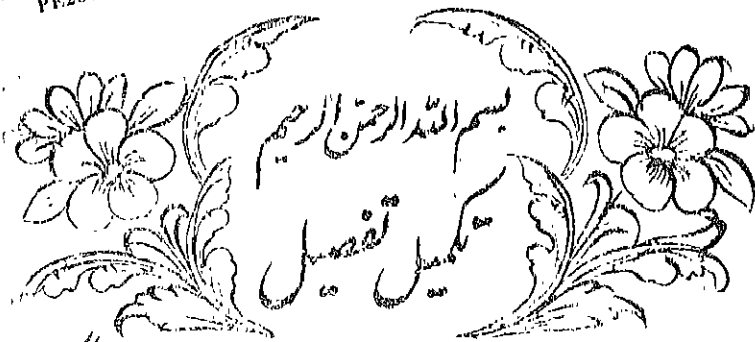 بسم الله الرحمن الرحيم
تکمیل تفصیل